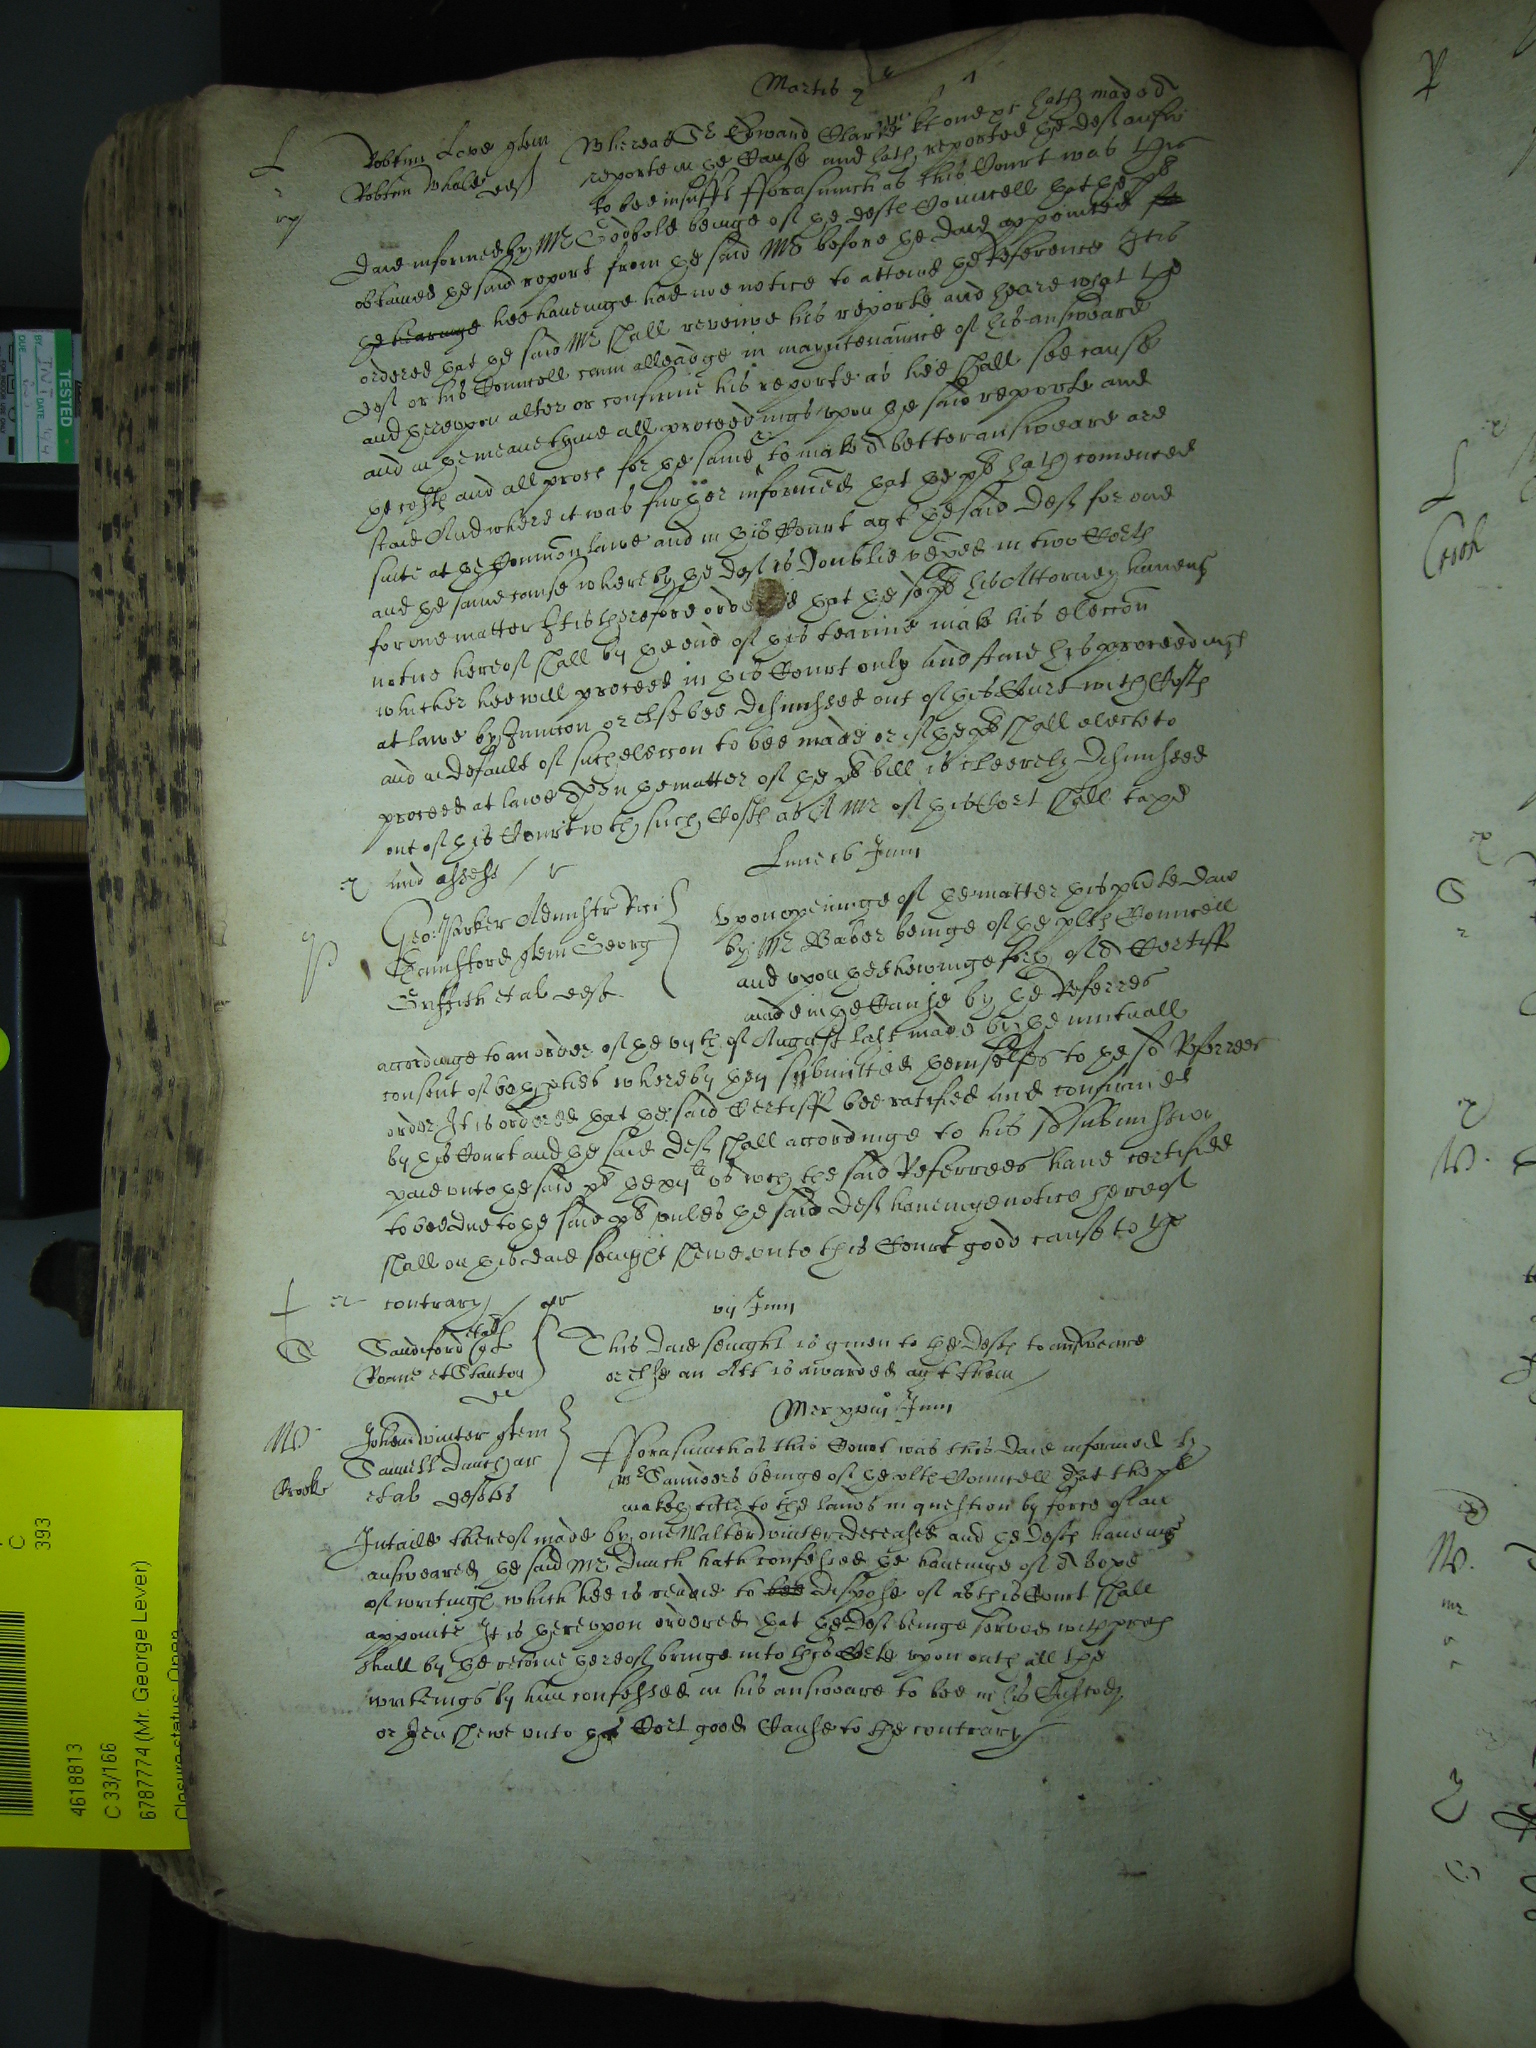 Martis
L Robtum Love quer Whereas Sr Edward Clarke kt one &c hath made a
Robtum Whale def reporte in ye Cause and hath reported ye deft answer
to bee insufft Fforasmuch as this Court was this
Daie informed by Mr Godbold beinge of ye defts Councell yat ye plt
obtained ye said report from ye said Mr before ye daie appointed for
ye hearinge hee haueinge had noe notice to attend ye reference It is
ordered yat ye said Mr shall reveiwe his reporte and heare what the
deft or his Councell cann alleadge in mayntenaunce of his answeare
and therevpon alter or confirme his reporte as hee shall see cause
and in ye meane tyme all proceedings vpon ye said reporte and
ye costs and all proces for ye same & to make a better answeare are
staid And where it was further informed yat ye plt hath comenced
suite at ye Common lawe and in this Court agt ye said deft for one
and ye same cause whereby ye deft is doublie vexed in two Corts
for one matter It is therefore ordered yat ye plt his Attorney haueing
notice hereof shall by ye end of this tearme make his eleccon
whether hee will proceed in this Court only and staie his proceedings
at lawe by Iniuncon or else bee dismissed out of this Court with Costs
and in default of such eleccon to bee made or if ye plt shall elect to
proceed at lawe then ye matter of ye plts bill is cleerely dismissed
out of this Court wth such Costs as A Mr of this Cort shall taxe
and assesse
Lune 16 Junij
Geo: Parker Administr Rici
Hemsford quer Georg
Griffith et al def
Vpon openinge of ye matter this pnte daie
by Mr Baber beinge of ye plts Councell
and vpon ye shewinge forth of a Certiff
made in ye Cause by ye Referrees
accordinge to an order of ye vijth of August last made by ye mutuall
consent of both pties whereby they submitted themselfes to ye sd Referrees
order It is ordered yat ye said Certiff bee ratified and confirmed
by this Court and ye said deft shall accordinge to his sd submission
paie vnto ye said plt ye xijli vs wch the said Referrees haue certified
to bee due to ye said plt vnles ye said deft haueinge notice hereof
shall on this daie sennight shewe vnto this Court good cause to ye
contrary
vij Junij
S Sandford
et Stanton
This daie senight is giuen to the defts to answeare
or else an Att is awarded agt them
Mer xviij Junij
W Johem winter quer
Samuell Dunch ar
et al deftes
Crooke
Fforasmuch as this Court was this daie informed by
Mr Saunders beinge of ye plts Councell that the plt
maketh title to the lands in question by force of an
Intaile thereof made by one Walter winter deceased and ye defts haueing
answeared ye said Mr Dunch hath confessed ye haueinge of a boxe
of writings which hee is readie to bee dispose of as this Court shall
appointe It is herevpon ordered yat ye deft beinge served with proces
shall by ye retorne thereof bringe into this Corte vpon oath all the
writeings by him confessed in his answeare to bee in his Custody
or then shewe vnto this Cort good Cause to the contrary
TESTED
BY
DATE
DUE
C
393
4618813
C 33/166
6787774 (Mr. George Lever)
Closure status: Open